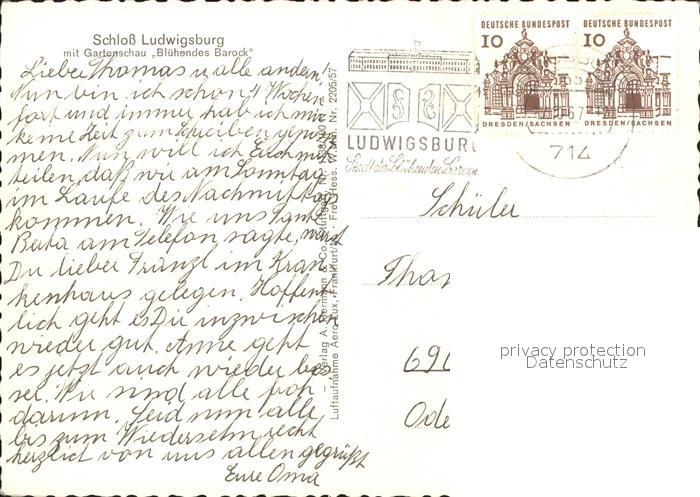 Schloß Ludwigsburg
mit Gartenschau „Blühendes Barock"
Lieber Thomas u. alle andern!
Nun bin ich schon 4 Wochen
fort und immer hab ich mir
keine Zeit zum Schreiben genom
men. Nun will ich Euch mit
teilen, daß wir am Sonntag
im Laufe des Nachmittags
kommen. Wie uns Tante
Berta am Telefon sagte, warst
Du lieber Franzl im Kran
kenhaus gelegen. Hoffent
lich geht es Dir inzwischen
wieder gut. Anne geht
es jetzt auch wieder bes
ser. Wir sind alle froh
darum. Seid nun alle
bis zum Wiedersehn recht
herzlich von uns allen gegrüßt
Eure Oma
Verlag A. & Co., Stuttgart, Nr.
Luftaufnahme Aero-Lux, Frankfurt/M. Frei. Hess. W. Min. Nr. 2205/57
DEUTSCHE BUNDESPOST
10
DRESDEN/SACHSEN
DEUTSCHE BUNDESPOST
10
DRESDEN/SACHSEN
LUDWIGSBURG
Stadt des Blühenden Barock
714
Schüler
Tho
690
Ode
privacy protection
Datenschutz